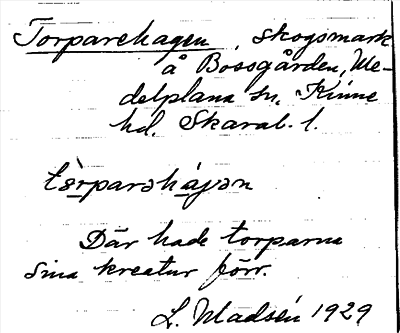 Torparehagen, skogsmark
å Bossgården, Me-
delplana sn. Kinne
hd. Skarab. l.
Där hade torparna
sina kreatur förr.
L. Madsén 1929